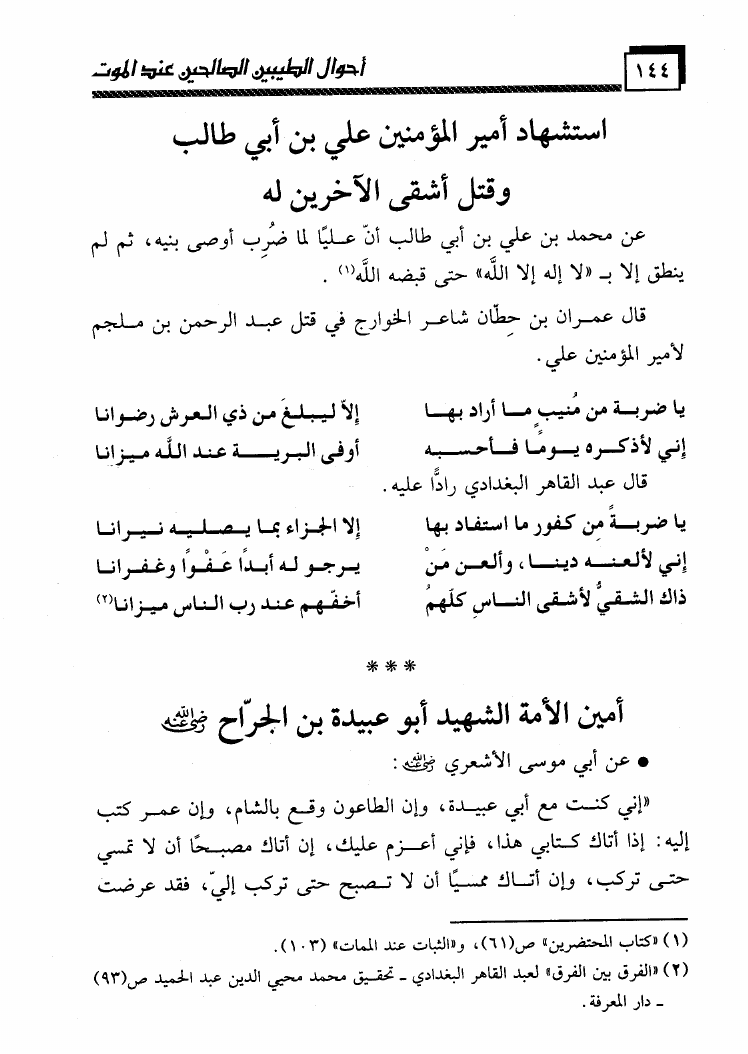 ١٤٤
أحوال الطيبين الصالحين عند الموت
استشهاد أمير المؤمنين علي بن أبي طالب
وقتل أشقى الآخرين له
عن محمد بن علي بن أبي طالب أنّ عـليًا لما ضُرِب أوصى بنيه، ثم لم
ينطق إلا بـ «لا إله إلا اللَّه» حتى قبضه اللَّه(١) .
قال عمـران بن حِطّان شاعـر الخوارج في قتل عبـد الرحمن بن مـلجم
لأمير المؤمنين علي.
يا ضربـة من مُنيبٍ مـا أراد بهـا إلاّ ليـبلـغَ من ذي العـرش رضـوانا
إني لأذكـره يـومًـا فـأحسـبه أوفى البريـة عند اللَّه ميـزانا
قال عبد القاهر البغدادي رادًّا عليه.
يا ضربـةً مِن كفورٍ ما استفاد بها إلا الجـزاء بمـا يـصـليـه نـيـرانـا
إني لألعنـه دينـا، وألعـن مَنْ يـرجـو لـه أبـدًا عَـفْـوًا وغـفـرانـا
ذاك الشـقيُّ لأشقى النـاسِ كلِّهمُ أخفّـهم عنـد رب النـاس ميـزانا(٢)
***
أمين الأمة الشهيد أبو عبيدة بن الجرّاح رضي الله عنه
● عن أبي موسى الأشعري رضي الله عنه :
«إني كنـت مع أبي عبيـدة، وإن الطاعون وقـع بالشام، وإن عمـر كتب
إليه: إذا أتاك كـتابي هذا، فإني أعـزم عليك، إن أتاك مصبـحًا أن لا تمسي
حتـى تركب، وإن أتـاك ممسيًا أن لا تـصبح حتى تركب إليّ، فقد عرضت
(١) «كتاب المحتضرين» ص(٦١)، و«الثبات عند الممات» (١٠٣).
(٢) «الفرق بين الفرق» لعبد القاهر البغدادي ـ تحقيق محمد محيي الدين عبد الحميد ص(٩٣)
ـ دار المعرفة.